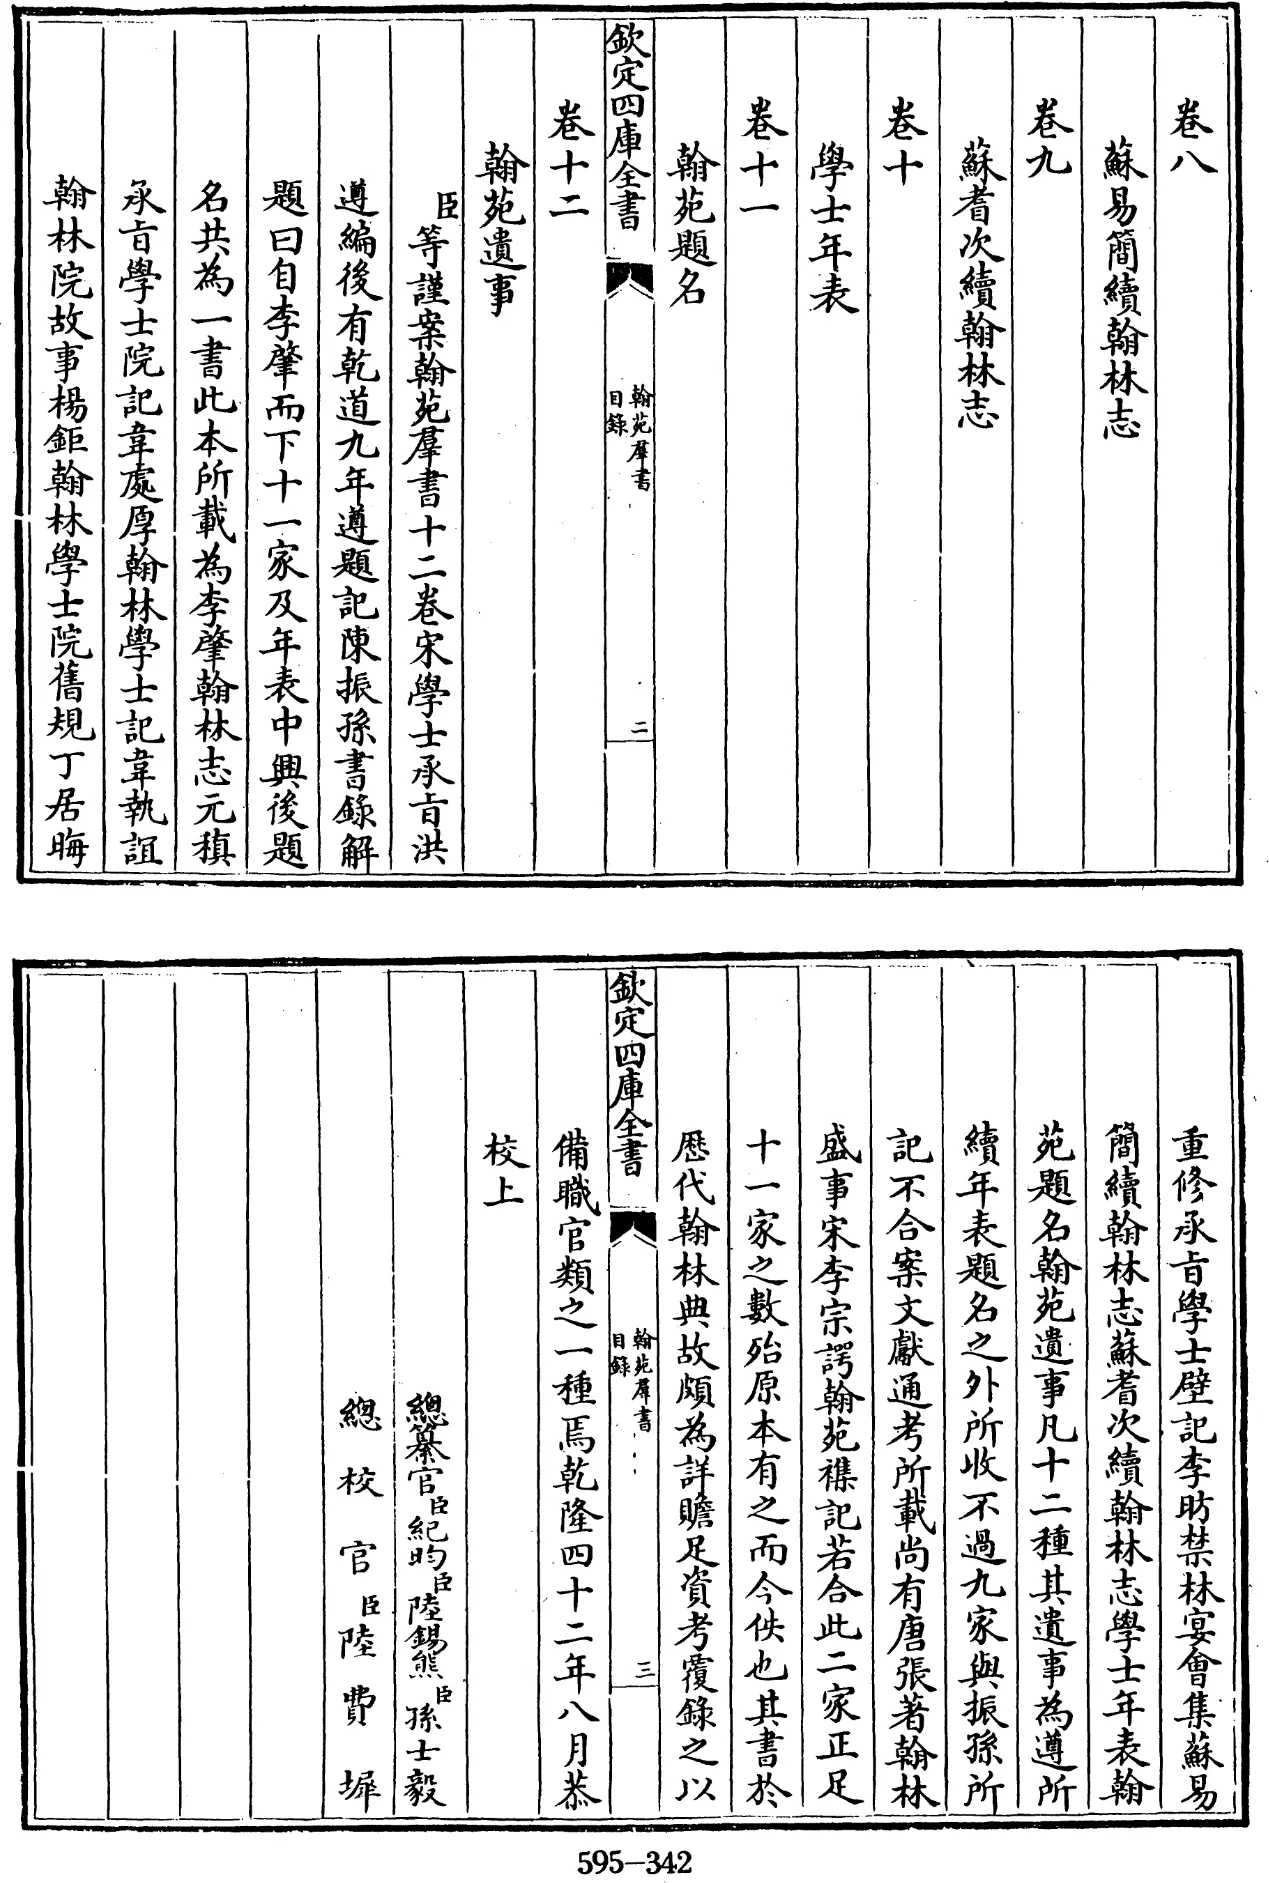 卷八
蘇易簡續翰林志
卷九
蘇耆次續翰林志
卷十
學士年表
卷十一
翰苑題名
欽定四庫全書
翰苑羣書
目錄
二
卷十二
翰苑遺事
臣等謹案翰苑羣書十二卷宋學士承㫖洪
遵編後有乾道九年遵題記陳振孫書錄解
題曰自李肇而下十一家及年表中興後題
名共為一書此本所載為李肇翰林志元稹
承㫖學士院記韋處厚翰林學士記韋執誼
翰林院故事楊鉅翰林學士院舊規丁居晦
重修承㫖學士壁記李昉禁林宴會集蘇易
簡續翰林志蘇耆次續翰林志學士年表翰
苑題名翰苑遺事凡十二種其遺事為遵所
續年表題名之外所收不過九家與振孫所
記不合案文獻通考所載尚有唐張著翰林
盛事宋李宗諤翰苑襍記若合此二家正足
十一家之數殆原本有之而今佚也其書於
歷代翰林典故頗為詳贍足資考覆錄之以
欽定四庫全書
翰苑羣書
目錄
三
備職官類之一種焉乾隆四十二年八月恭
校上
總纂官臣紀昀臣陸錫熊臣孫士毅
總校官臣陸費墀
595-342